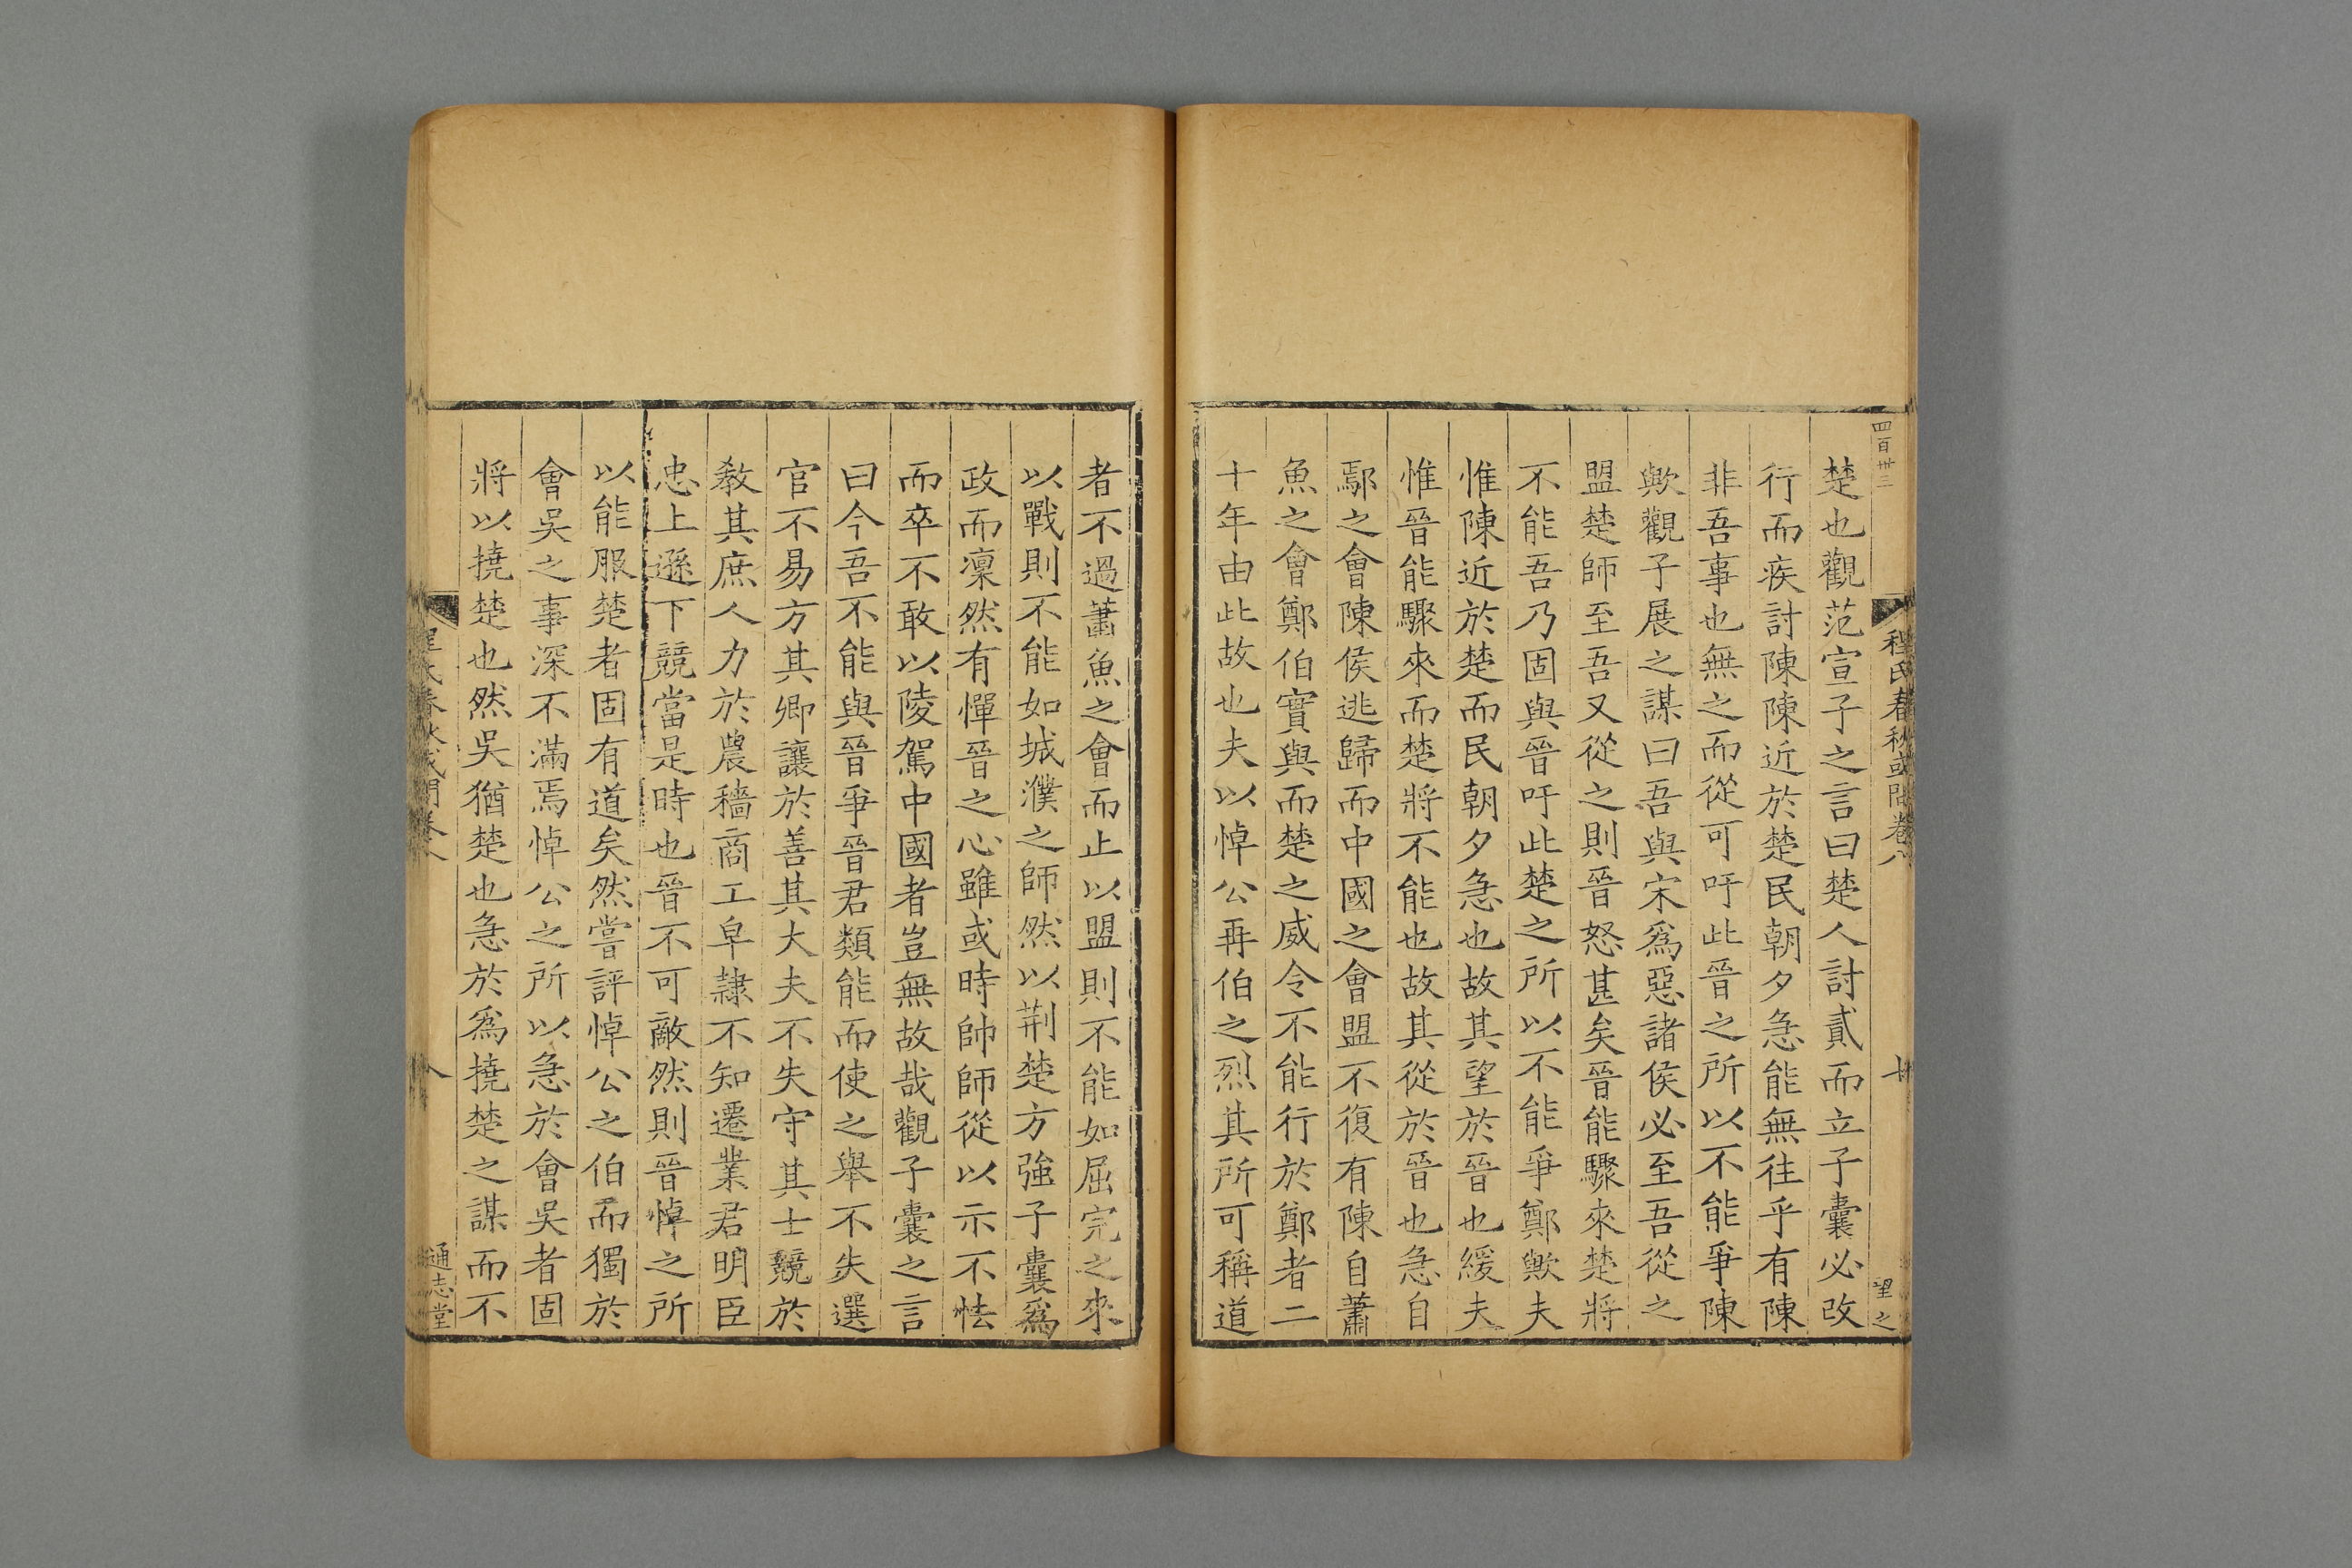 四百卅三
程氏春秋或問卷八
望之
楚也觀范宣子之言曰楚人討貳而立子囊必改
行而疾討陳陳近於楚民朝夕急能無往乎有陳
非吾事也無之而從可吁此晉之所以不能爭陳
歟觀子展之謀曰吾與宋爲惡諸侯必至吾從之
盟楚師至吾又從之則晉怒甚矣晉能驟來楚將
不能吾乃固與晉吁此楚之所以不能爭鄭歟夫
惟陳近於楚而民朝夕急也故其望於晉也緩夫
惟晉能驟來而楚將不能也故其從於晉也急自
鄢之會陳侯逃歸而中國之會盟不復有陳自蕭
魚之會鄭伯實與而楚之威令不能行於鄭者二
十年由此故也夫以悼公再伯之烈其所可稱道
者不過蕭魚之會而止以盟則不能如屈完之來
以戰則不能如城濮之師然以荆楚方強子囊爲
政而凜然有憚晉之心雖或時帥師從以示不怯
而卒不敢以陵駕中國者豈無故哉觀子囊之言
曰今吾不能與晉爭晉君類能而使之舉不失選
官不易方其卿讓於善其大夫不失守其士競於
教其庶人力於農穡商工皁隷不知遷業君明臣
忠上遜下競當是時也晉不可敵然則晉悼之所
以能服楚者固有道矣然嘗評悼公之伯而獨於
會吳之事深不滿焉悼公之所以急於會吳者固
將以撓楚也然吳猶楚也急於爲撓楚之謀而不
程氏春秋或問卷八
通志堂